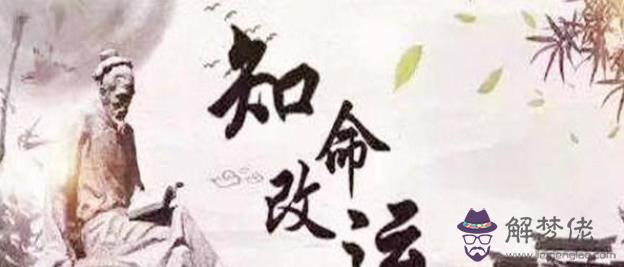 知命改运
解梦佬
www.jiemenglao.com